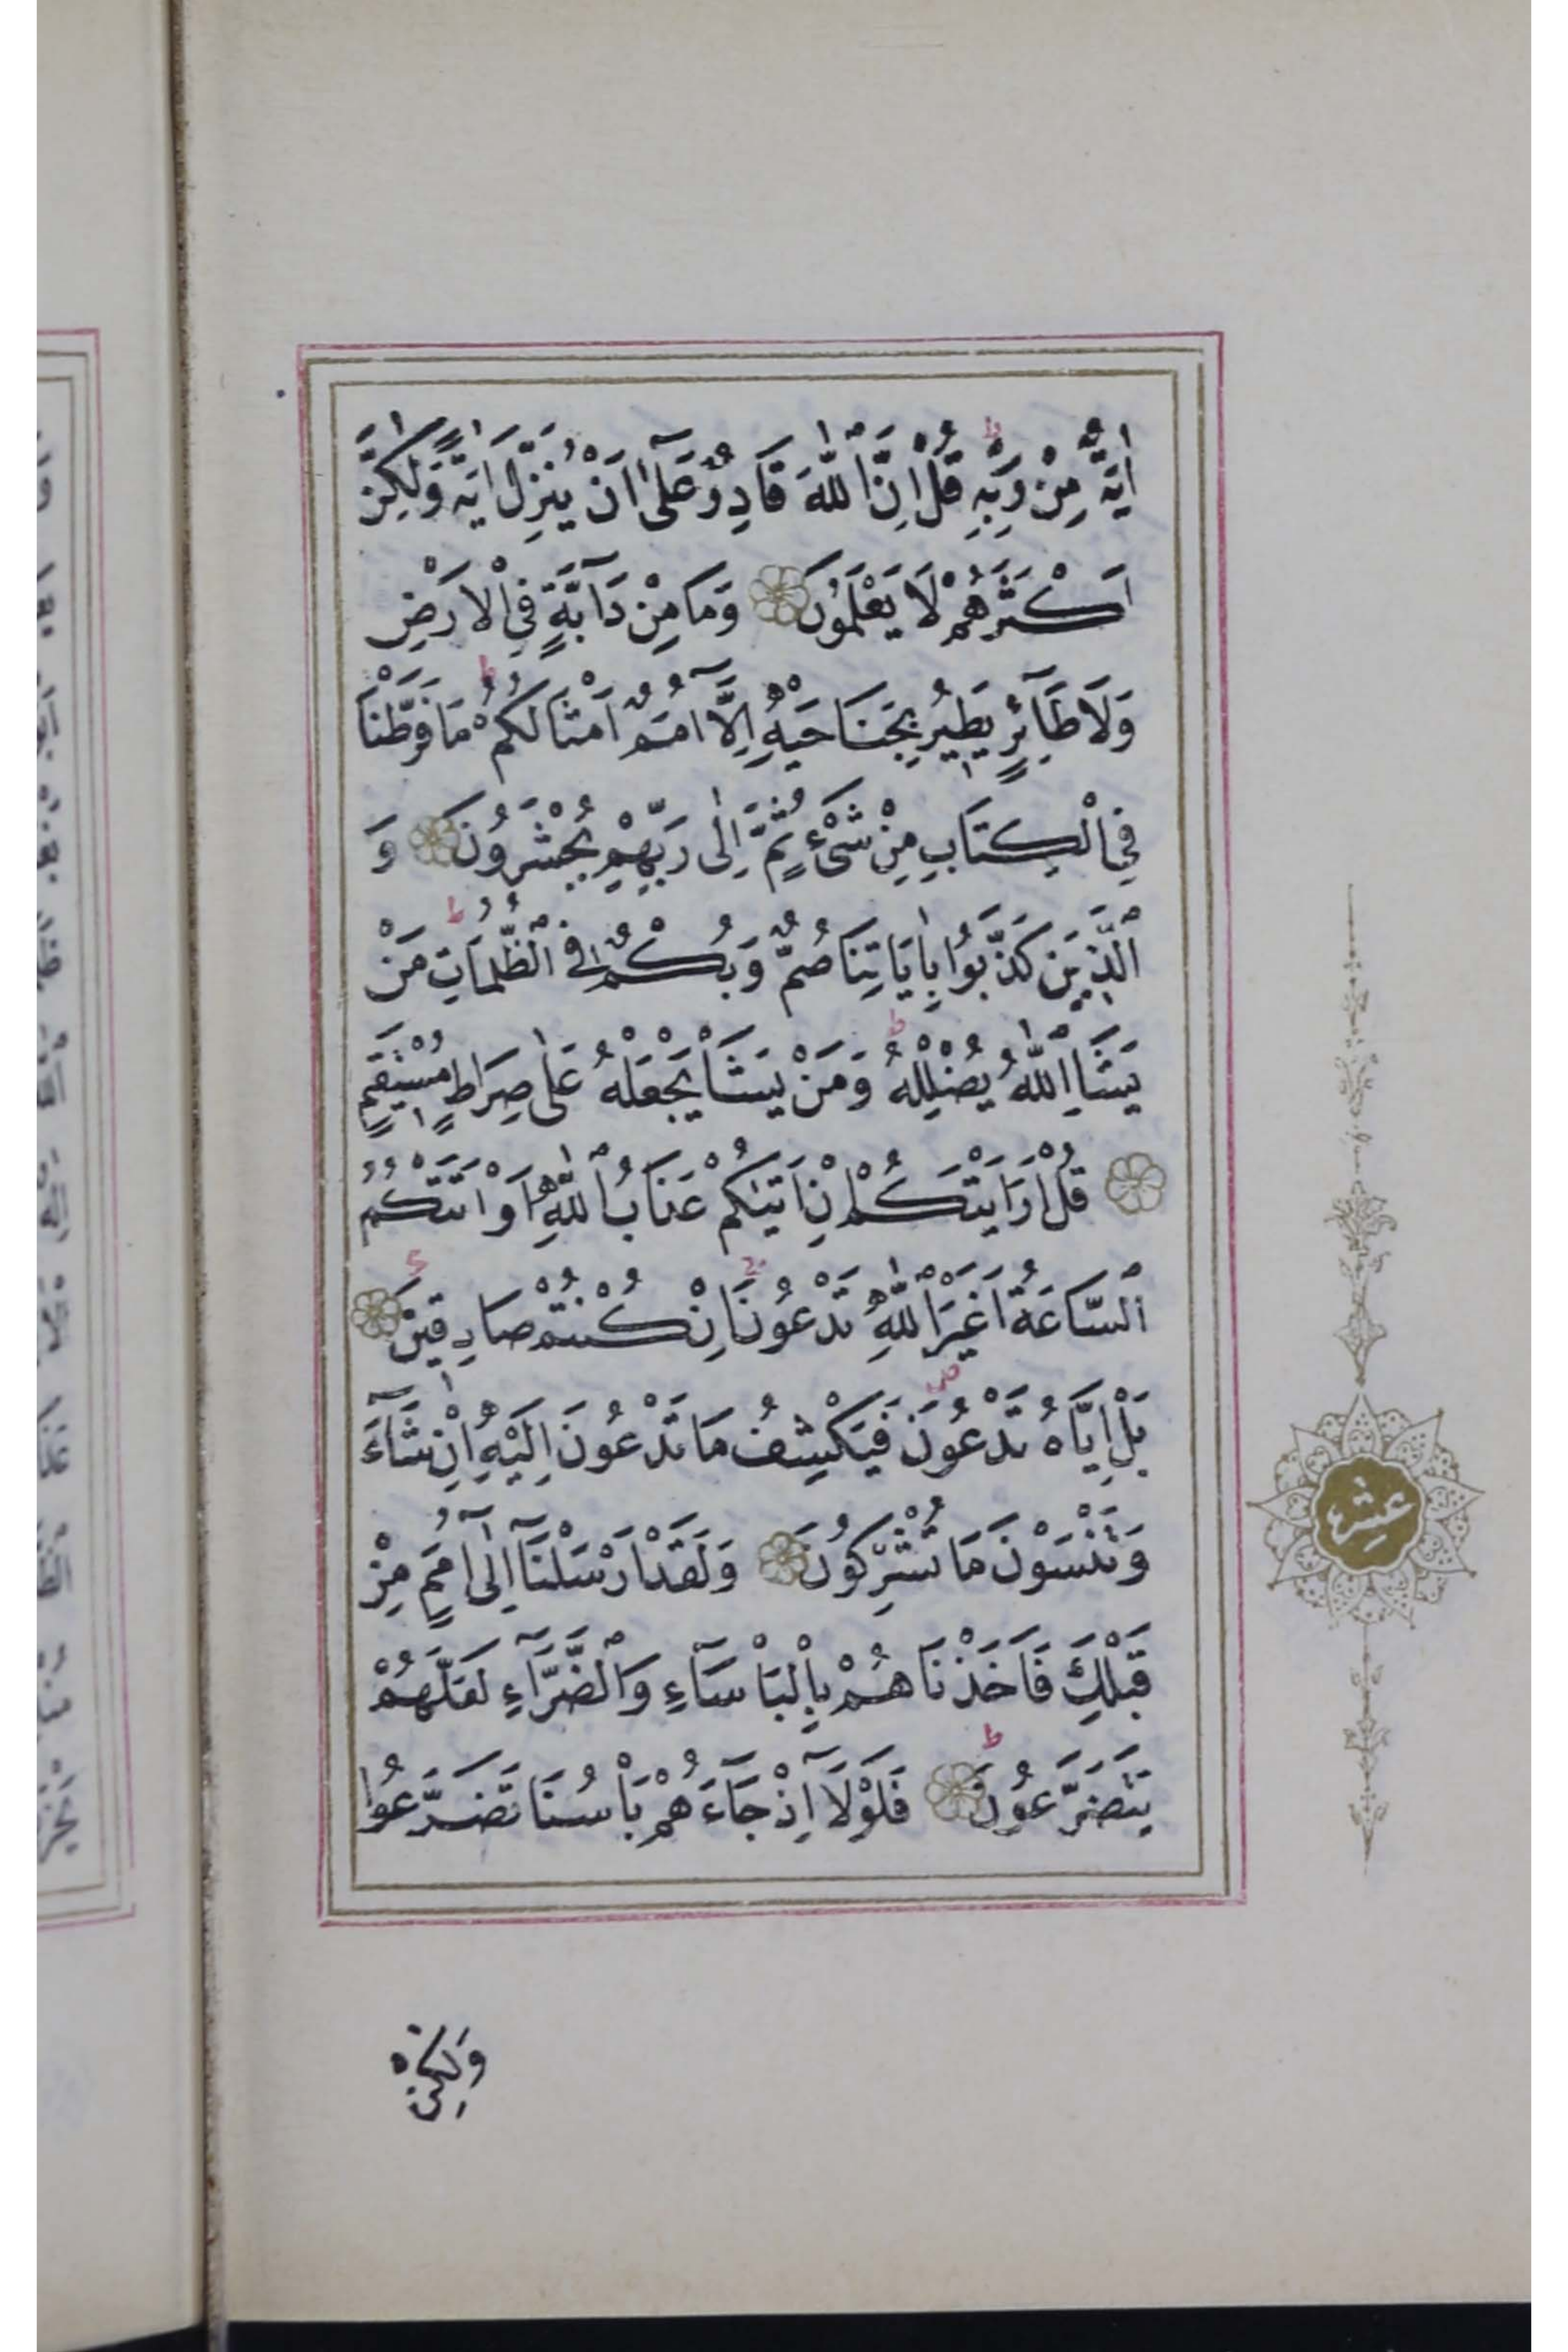 اٰيَةٌ مِنْ رَبِّهٖ قُلْ اِنَّ اللّٰهَ قَادِرٌ عَلٰٓى اَنْ يُنَزِّلَ اٰيَةً وَلٰكِنَّ
اَكْثَرَهُمْ لَا يَعْلَمُونَ وَمَا مِنْ دَٓابَّةٍ فِي الْاَرْضِ
وَلَا طَٓائِرٍ يَطٖيرُ بِجَنَاحَيْهِ اِلَّٓا اُمَمٌ اَمْثَالُكُمْ مَا فَرَّطْنَا
فِي الْكِتَابِ مِنْ شَيْءٍ ثُمَّ اِلٰى رَبِّهِمْ يُحْشَرُونَ وَ
الَّذٖينَ كَذَّبُوا بِاٰيَاتِنَا صُمٌّ وَبُكْمٌ فِي الظُّلُمَاتِ مَنْ
يَشَاِ اللّٰهُ يُضْلِلْهُ وَمَنْ يَشَاْ يَجْعَلْهُ عَلٰى صِرَاطٍ مُسْتَقٖيمٍ
قُلْ اَرَاَيْتَكُمْ اِنْ اَتٰيكُمْ عَذَابُ اللّٰهِ اَوْ اَتَتْكُمُ
السَّاعَةُ اَغَيْرَ اللّٰهِ تَدْعُونَ اِنْ كُنْتُمْ صَادِقٖينَ
بَلْ اِيَّاهُ تَدْعُونَ فَيَكْشِفُ مَا تَدْعُونَ اِلَيْهِ اِنْ شَٓاءَ
وَتَنْسَوْنَ مَا تُشْرِكُونَ وَلَقَدْ اَرْسَلْنَٓا اِلٰٓى اُمَمٍ مِنْ
قَبْلِكَ فَاَخَذْنَاهُمْ بِالْبَاْسَٓاءِ وَالضَّرَّٓاءِ لَعَلَّهُمْ
يَتَضَرَّعُونَ فَلَوْلَٓا اِذْ جَٓاءَهُمْ بَاْسُنَا تَضَرَّعُوا
وَلٰكِنْ
عشر